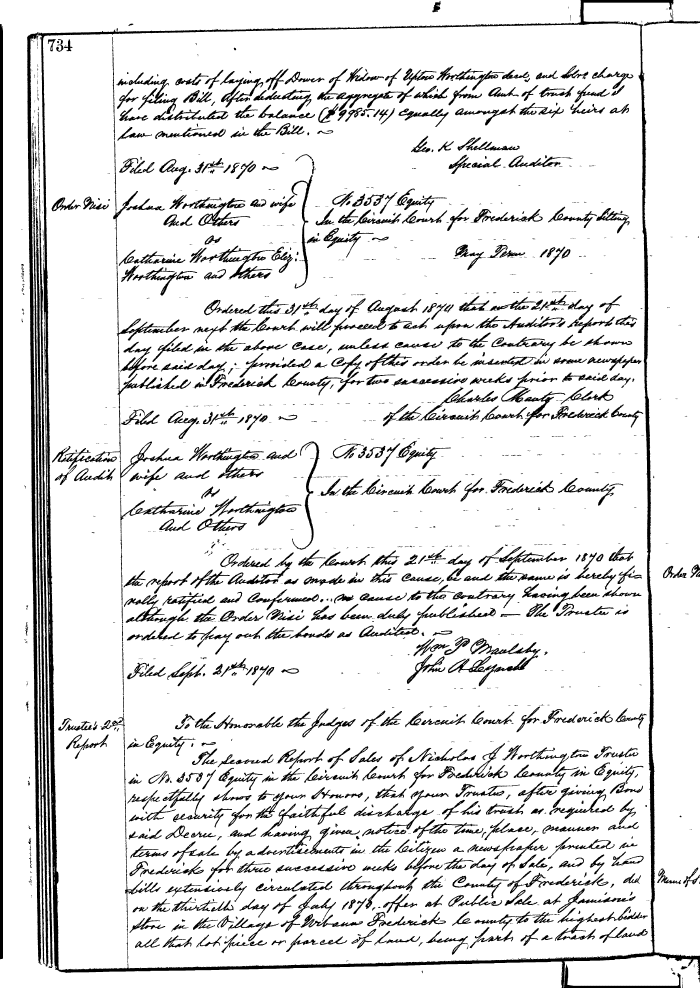 734
including costs of laying off Dower of Widow of Upton Worthington decd, and Solrs charge
for filing Bill, after deducting the aggregate of which from Amt of trust fund I
have distributed the balance ($9985.14) equally amongst the six heirs at
law mentioned in the Bill. ~
Geo. K Shellman
Special Auditor
Filed Aug. 31st 1870 ~
Order Nisi
Joshua Worthington and wife
And Others
vs
Catharine Worthington Eliz:
Worthington and others
No 3537 Equity
In the Circuit Court for Frederick County Sitting
in Equity ~
May Term 1870
Ordered this 31st day of August 1870 that on the 21st day of
September next the Court will proceed to act upon the Auditor's report this
day filed in the above case, unless cause to the Contrary be shown
before said day; provided a Copy of this order be inserted in some newspaper
published in Frederick County, for two successive weeks prior to said day.
Charles Mantz Clerk
of the Circuit Court for Frederick County
Filed Aug 31st 1870 ~
Ratification
of Audit
Joshua Worthington and
wife and others
vs
Catharine Worthington
And Others
No 3537 Equity
In the Circuit Court for Frederick County
Ordered by the Court this 21st day of September 1870 that
the report of the Auditor as made in this cause, be and the same is hereby fi-
nally ratified and Confirmed... no cause to the contrary having been shown
although the Order Nisi has been duly published — The Trustee is
ordered to pay out the bonds as Audited. ~
Wm P Maulsby.
John A Lynch
Filed Sept. 21st 1870 ~
Trustee's 2nd
Report
To the Honorable the Judges of the Circuit Court for Frederick County
in Equity. ~
The second Report of Sales of Nicholas J Worthington Trustee
in No. 3537 Equity in the Circuit Court for Frederick County in Equity,
respectfully shows to your Honors, that your Trustee, after giving Bond
with security for the faithful discharge of his trust as required by
said Decree, and having given notice of the time, place, manner and
terms of sale by advertisements in the Citizen a newspaper printed in
Frederick for three successive weeks before the day of Sale, and by hand
bills extensively circulated throughout the County of Frederick, did
on the thirtieth day of July 1870. offer at Public Sale at Jamison's
Store in the Village of Urbana Frederick County to the highest bidder
all that lot piece or parcel of land, being part of a tract of land